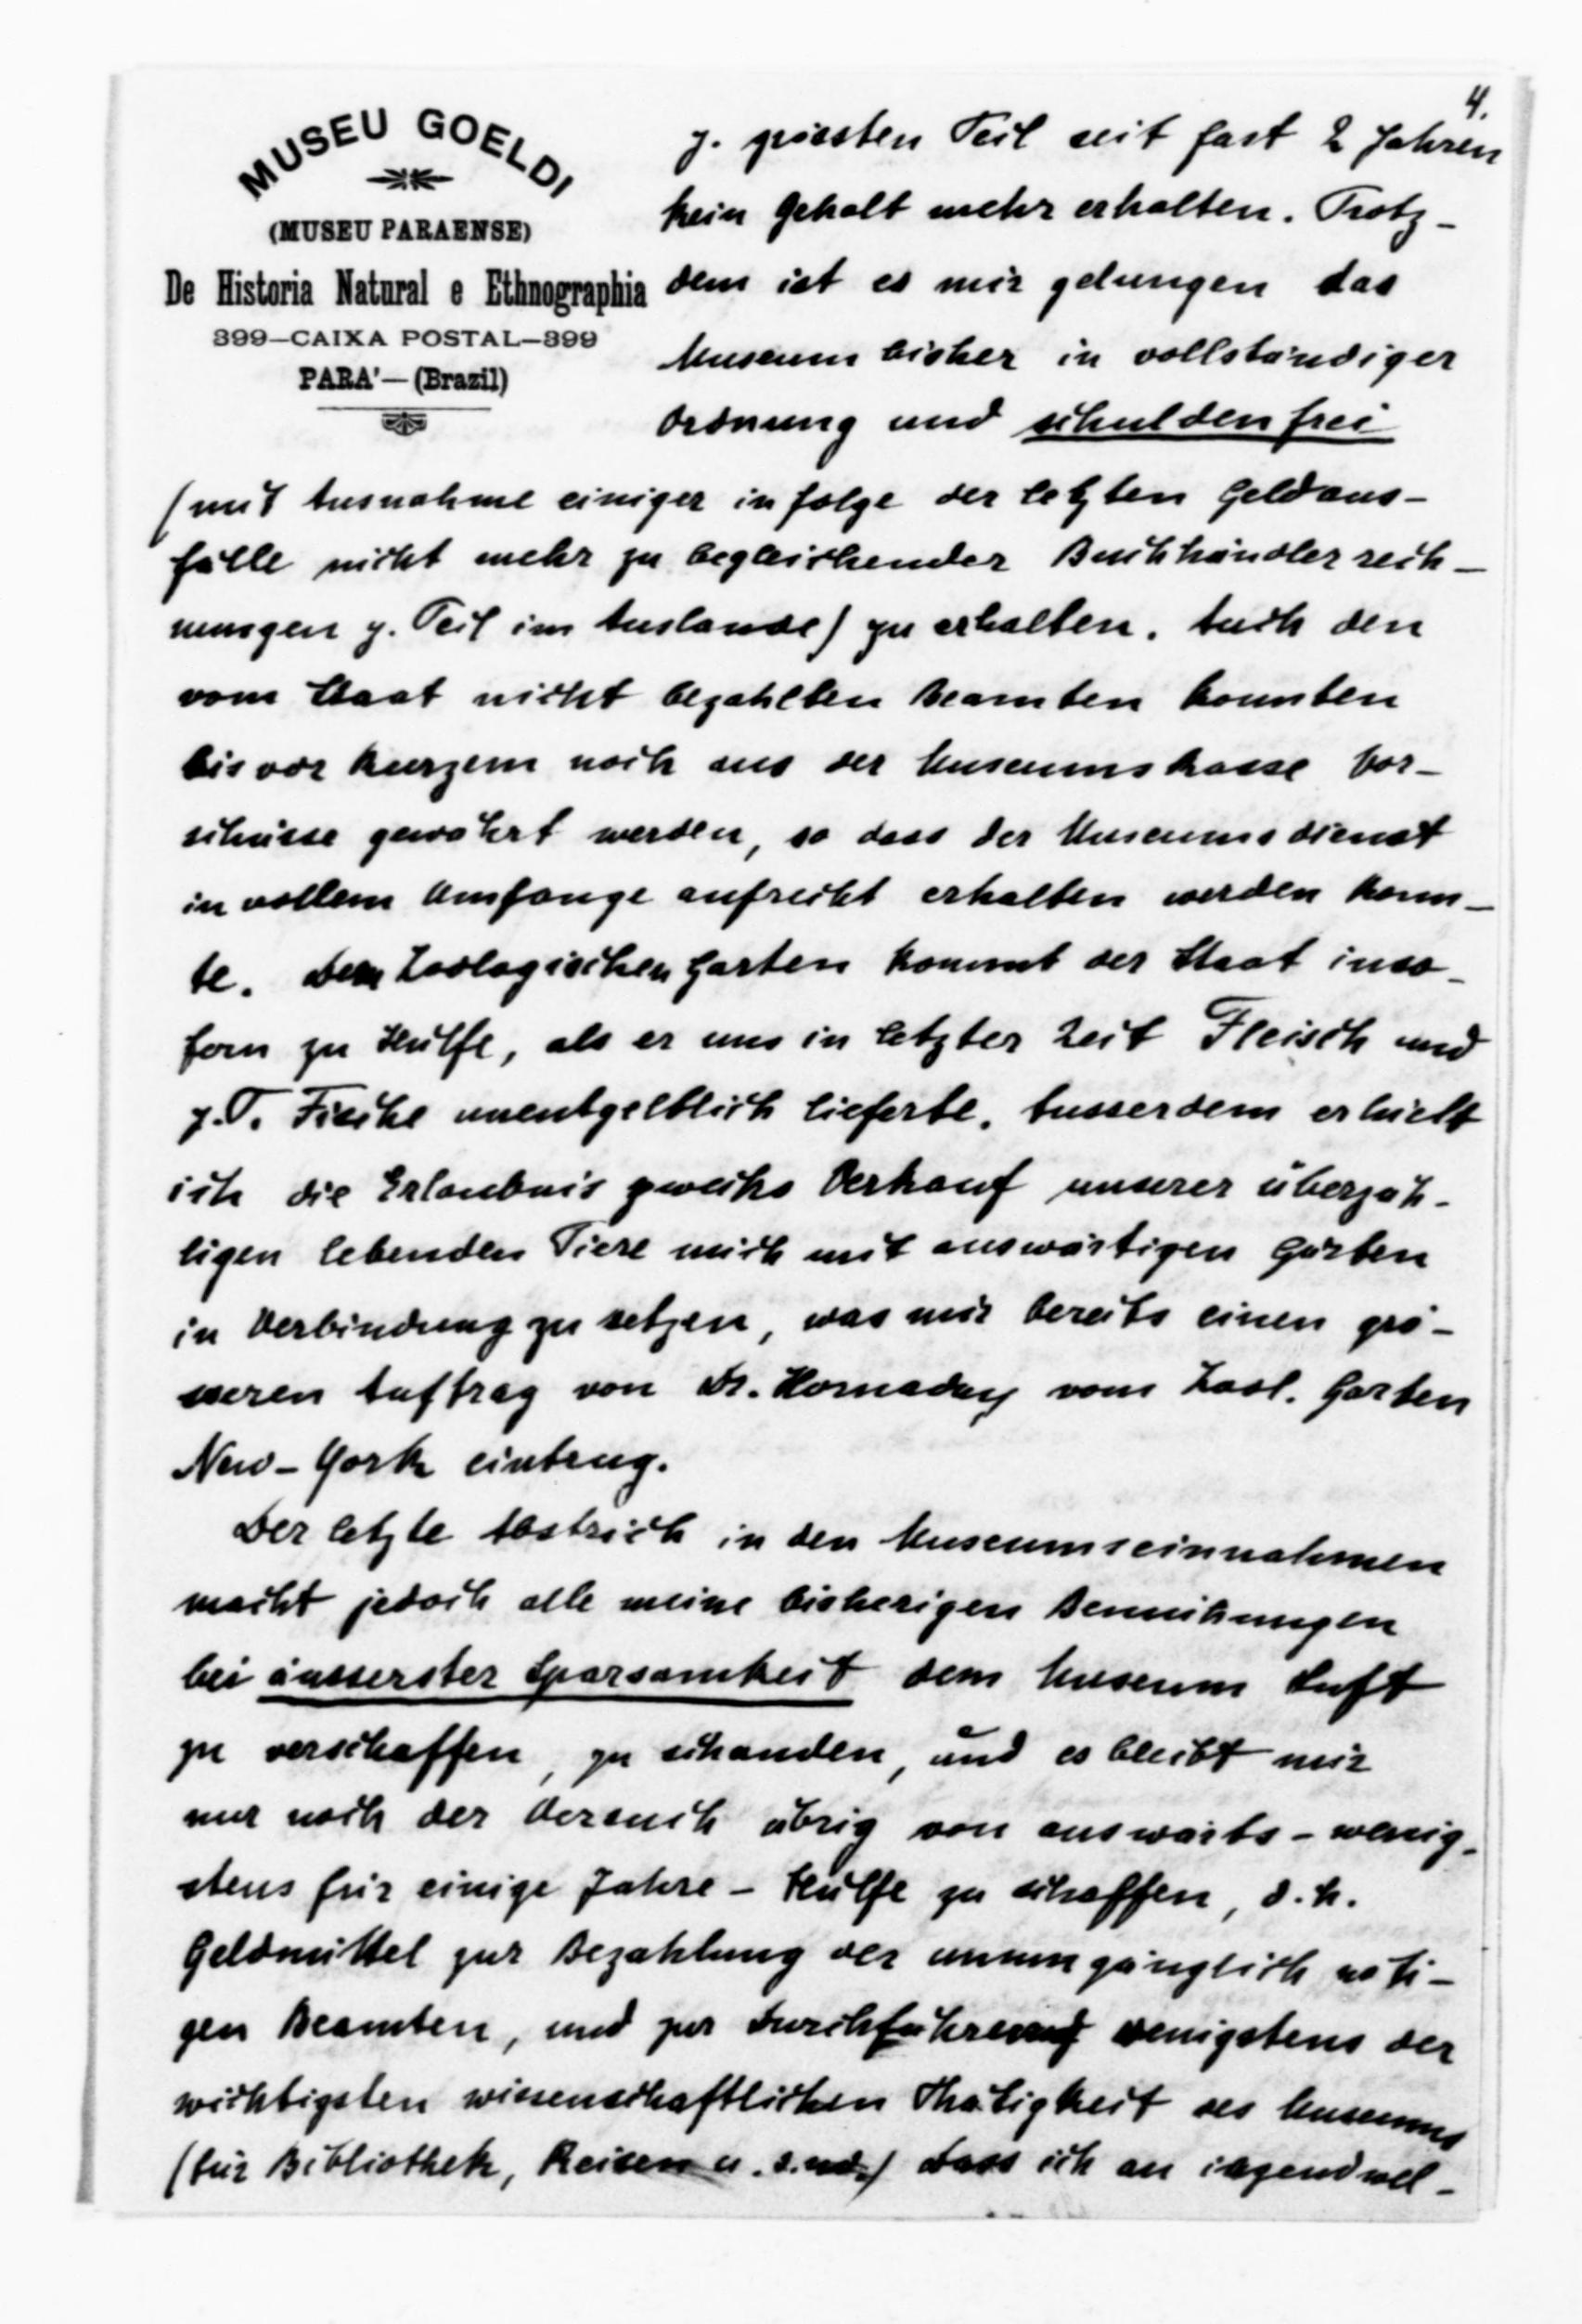 4.
MUSEU GOELDI
(MUSEU PARAENSE)
De Historia Natural e Ethnographia
399—CAIXA POSTAL—399
PARA'—(Brazil)
z. grössten Teil seit fast 2 Jahren
kein Gehalt mehr erhalten. Trotz-
dem ist es mir gelungen das
Museum bisher in vollständiger
Ordnung und schuldenfrei
(mit Ausnahme einiger infolge der letzten Geldaus-
fälle nicht mehr zu begleichender Buchhändlerrech-
nungen z. Teil im Auslande) zu erhalten. Auch den
vom Staat nicht bezahlten Beamten konnten
bis vor kurzem noch aus der Museumskasse Vor-
schüsse gewährt werden, so dass der Museumsdienst
in vollem Umfange aufrecht erhalten werden konn-
te. Dem Zoologischen Garten kommt der Staat inso-
fern zu Hülfe, als er uns in letzter Zeit Fleisch und
z.T. Fische unentgeltlich lieferte. Ausserdem erhielt
ich die Erlaubnis zwecks Verkauf unserer überzäh-
ligen lebenden Tiere mich mit auswärtigen Gärten
in Verbindung zu setzen, was mir bereits einen grö-
sseren Auftrag von Dr. Hornaday vom Zool. Garten
New-York eintrug.
Der letzte Abstrich in den Museumseinnahmen
macht jedoch alle meine bisherigen Bemühungen
bei äusserster Sparsamkeit dem Museum Luft
zu verschaffen, zu schanden, und es bleibt mir
nur noch der Versuch übrig von auswärts - wenig-
stens für einige Jahre - Hülfe zu schaffen, d.h.
Geldmittel zur Bezahlung der unumgänglich nöti-
gen Beamten, und zur Durchführung wenigstens der
wichtigsten wissenschaftlichen Thätigkeit des Museums
(für Bibliothek, Reisen u.s.w.) Dass ich an irgendwel-